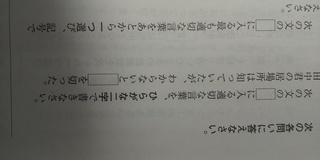 次の各問いに答えなさい。
次の文の□に入る適切な言葉を、ひらがな二字で書きなさい。
田中君の居場所は知っていたが、わからないと□を切った。
次の文の□に入る最も適切な言葉をあとから一つ選び、記号で
えなさい。